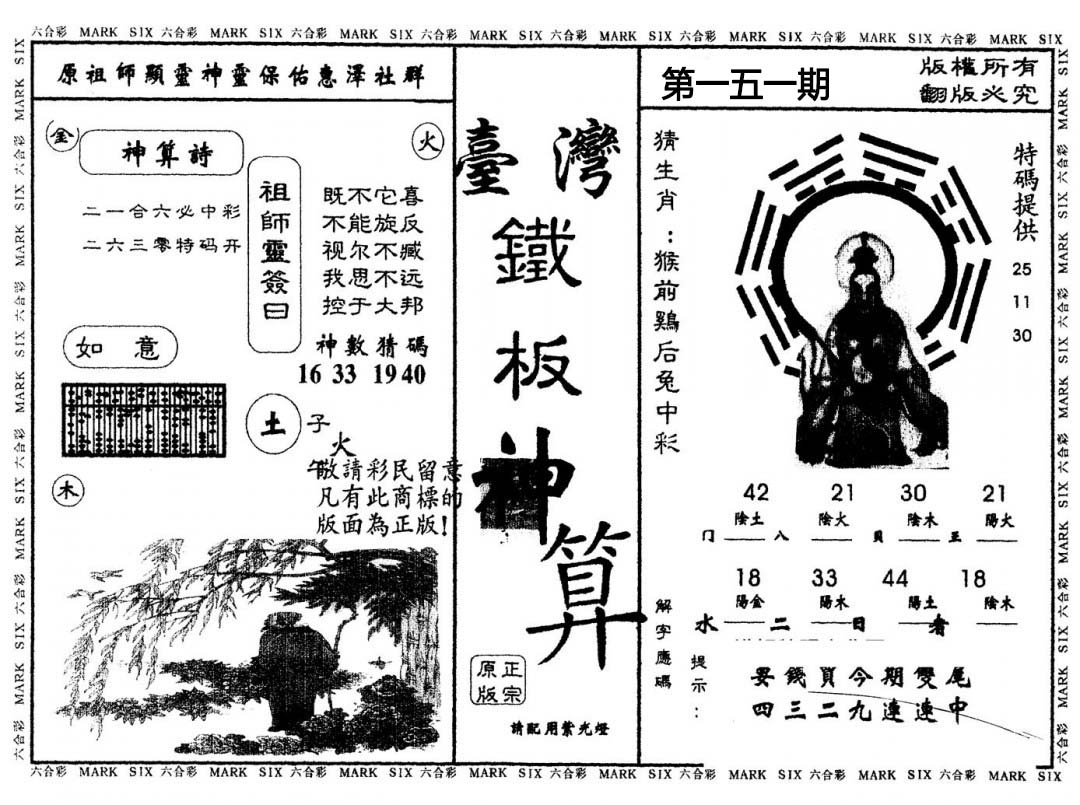 六合彩 MARK SIX 六合彩 MARK SIX 六合彩 MARK SIX 六合彩 MARK SIX 六合彩 MARK SIX 六合彩 MARK SIX 六合彩 MARK SIX 六合彩 MARK SIX
原祖師顯靈神靈保佑惠澤社群
金
火
神算詩
二一合六必中彩
二六三零特码开
祖師靈簽曰
既不它喜
不能旋反
视尔不臧
我思不远
控于大邦
如意
神數猜碼
16 33 19 40
土
子
火
木
敬請彩民留意
凡有此商標的
版面為正版!
臺灣
鐵
板
神
算
正宗
原版
請配用紫光燈
第一五一期
版權所有
翻版必究
猜生肖:猴前鷄后兔中彩
特碼提供
25
11
30
42 21 30 21
陰土 陰火 陰木 陽火
门 八 貝 王
18 33 44 18
陽金 陽木 陽土 陰木
水 二 日 者
解字應碼
提示:
要錢買今期雙尾
四三二九連連中
六合彩 MARK SIX 六合彩 MARK SIX 六合彩 MARK SIX 六合彩 MARK SIX 六合彩 MARK SIX 六合彩 MARK SIX 六合彩 MARK SIX 六合彩 MARK SIX